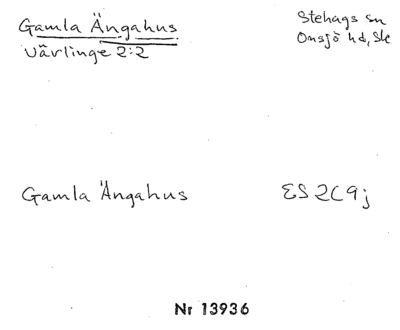 Gamla Ängahus
Värlinge 2:2
Stehags sn
Onsjö hd, Sk
Gamla Ängahus
ES 2C 9j
Nr 13936